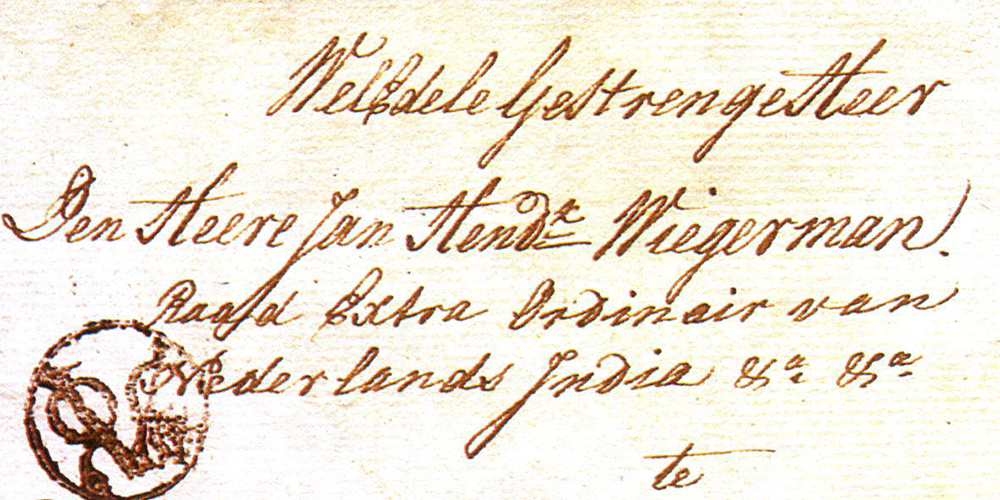 WelEdele Gestrenge Heer
Den Heere Jan Hendk Wiegerman.
Raad Extra Ordinair van
Nederlands India &a. &a.
te